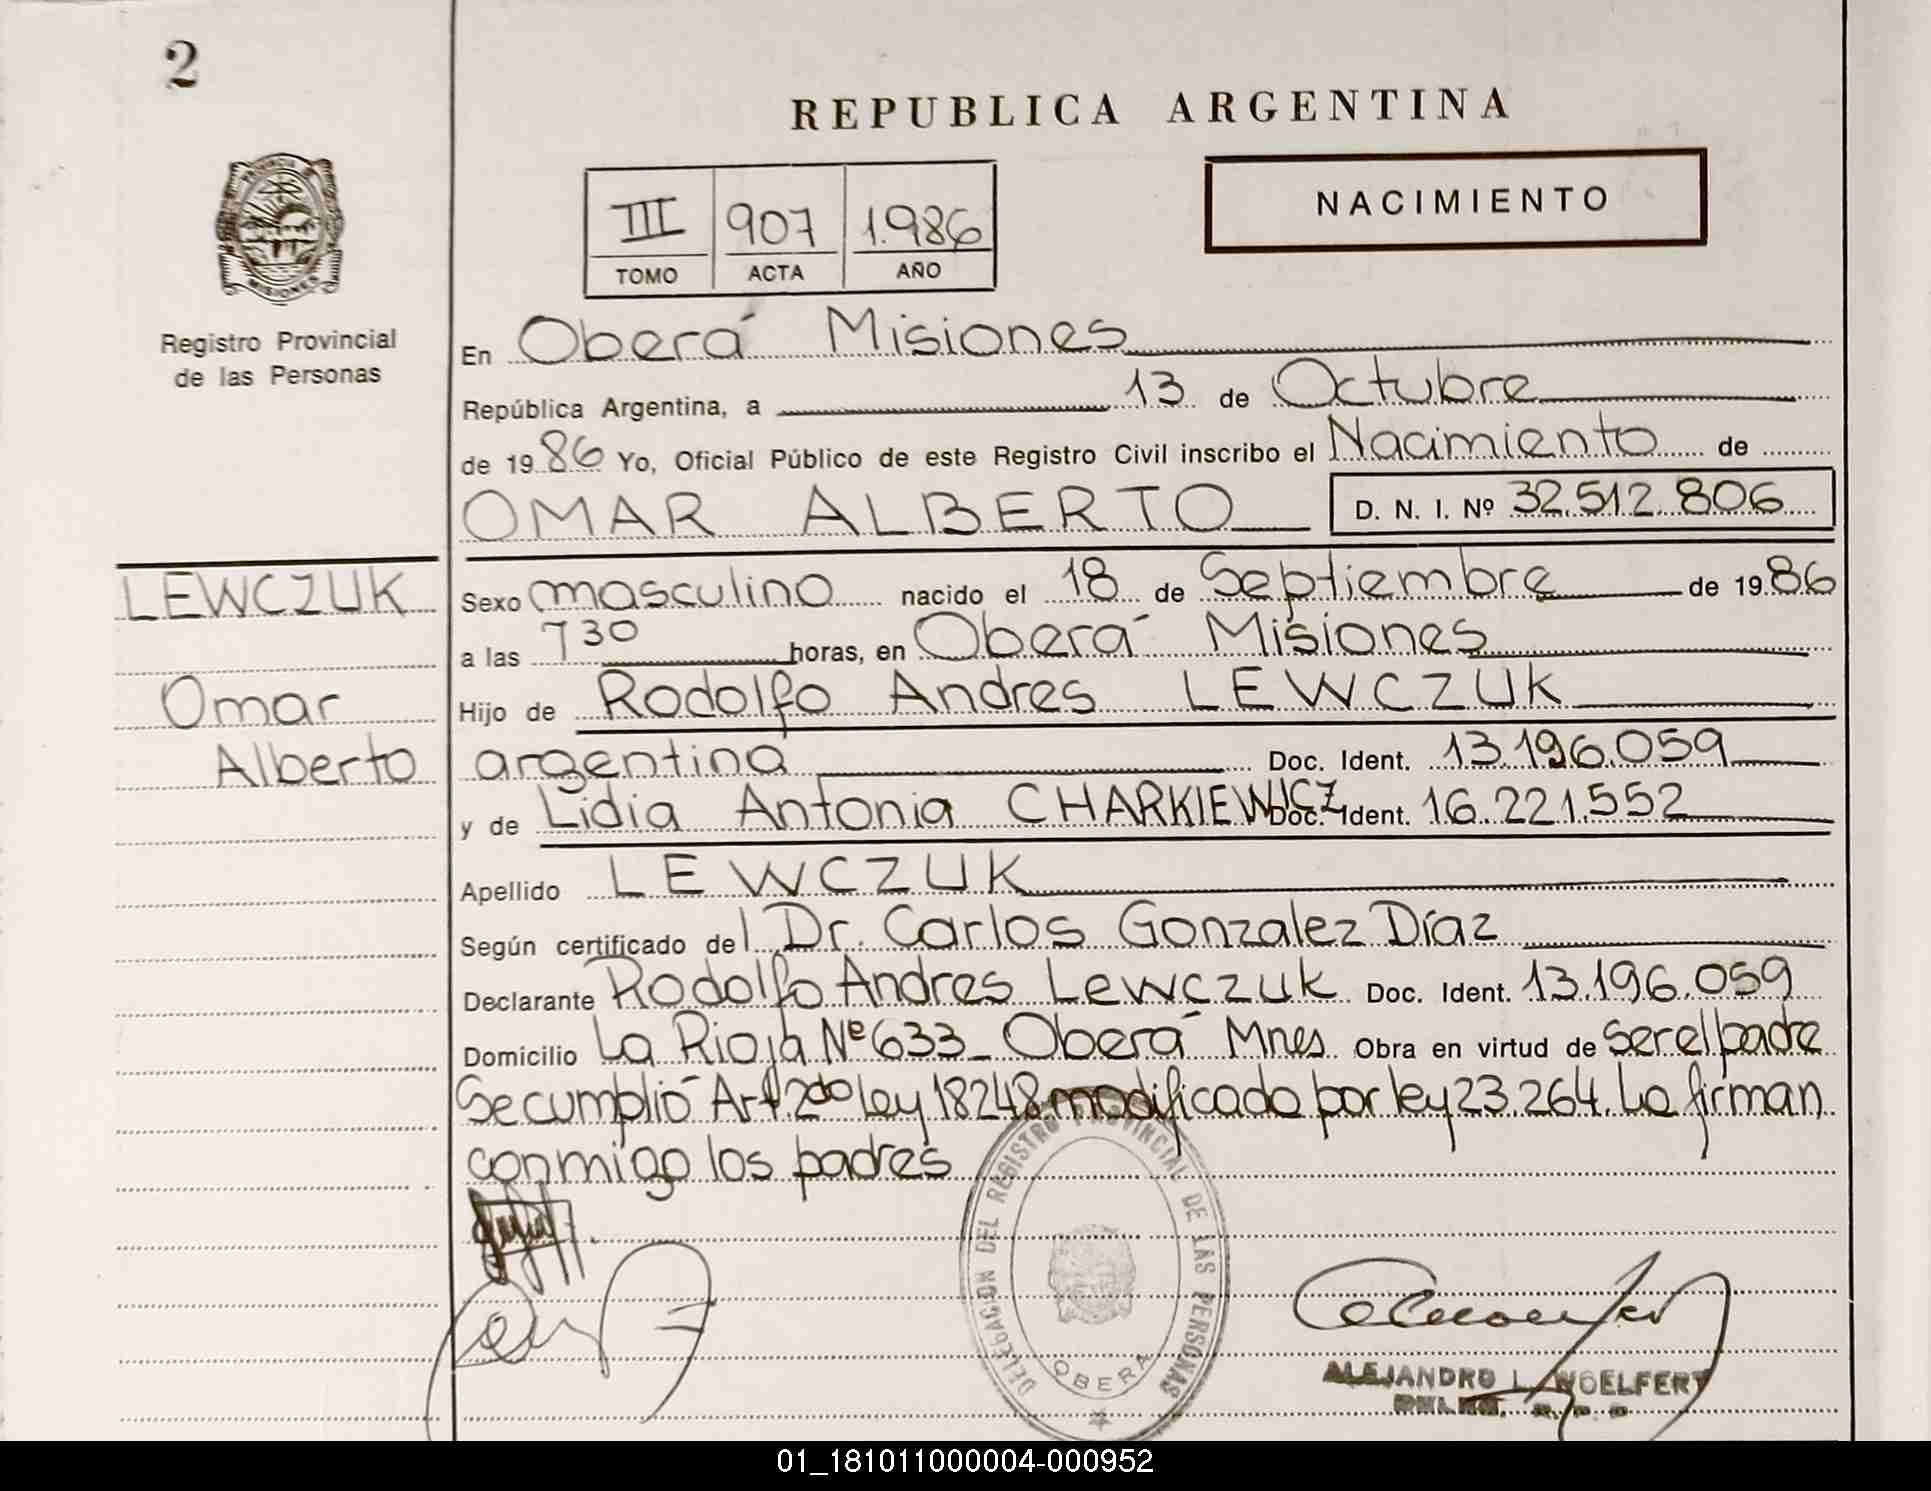 2
REPUBLICA ARGENTINA
PROVINCIA DE
MISIONES
Registro Provincial
de las Personas
III 907 1.986
TOMO ACTA AÑO
NACIMIENTO
En Oberá Misiones
República Argentina, a 13 de Octubre
de 1986 Yo, Oficial Público de este Registro Civil inscribo el Nacimiento de
OMAR ALBERTO D. N. I. Nº 32.512.806
LEWCZUK
Omar
Alberto
Sexo masculino nacido el 18 de Septiembre de 1986
a las 7 30 horas, en Oberá Misiones
Hijo de Rodolfo Andres LEWCZUK
argentina Doc. Ident. 13.196.059
y de Lidia Antonia CHARKIEWICZ Doc. Ident. 16.221.552
Apellido LEWCZUK
Según certificado del Dr. Carlos Gonzalez Díaz
Declarante Rodolfo Andres Lewczuk Doc. Ident. 13.196.059
Domicilio La Rioja Nº 633 _ Oberá Mnes Obra en virtud de ser el padre
Se cumplió Art 2do ley 18248 modificado por ley 23.264. La firman
conmigo los padres
DELEGACION DEL REGISTRO PROVINCIAL DE LAS PERSONAS
OBERA
ALEJANDRO L. WOELFERT
01_181011000004-000952